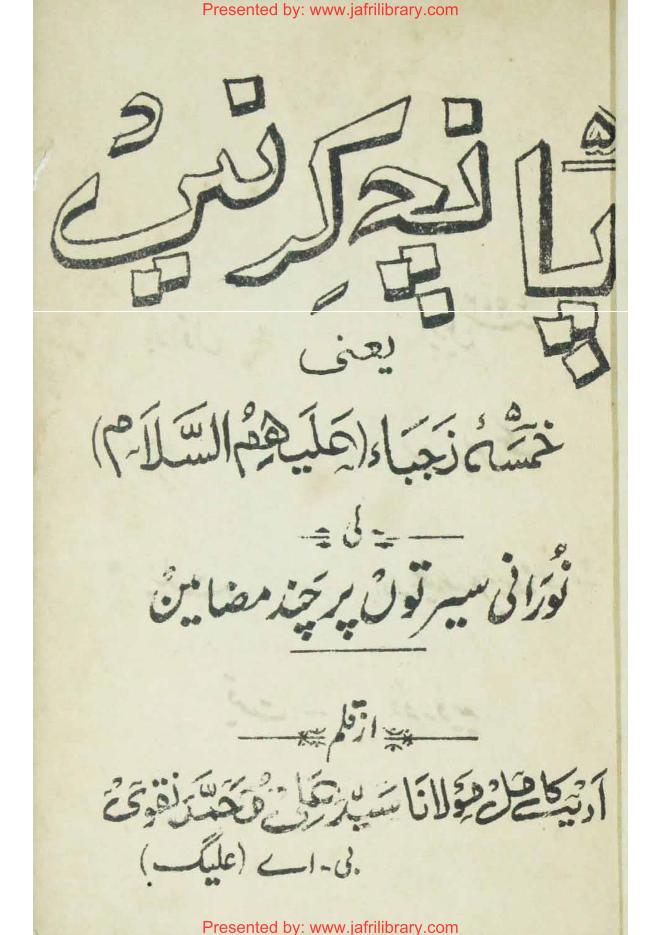 Presented by: www.jafrilibrary.com
پانچ کرنیں
یعنی
خمسۂ نجباء (عَلَیہِمُ السَّلَام)
کی
نُورانی سیرتوں پر چند مضامین
از قلم
ادیب کامل مولانا سید علی محمد نقوی
بی-اے (علیگ)
Presented by: www.jafrilibrary.com